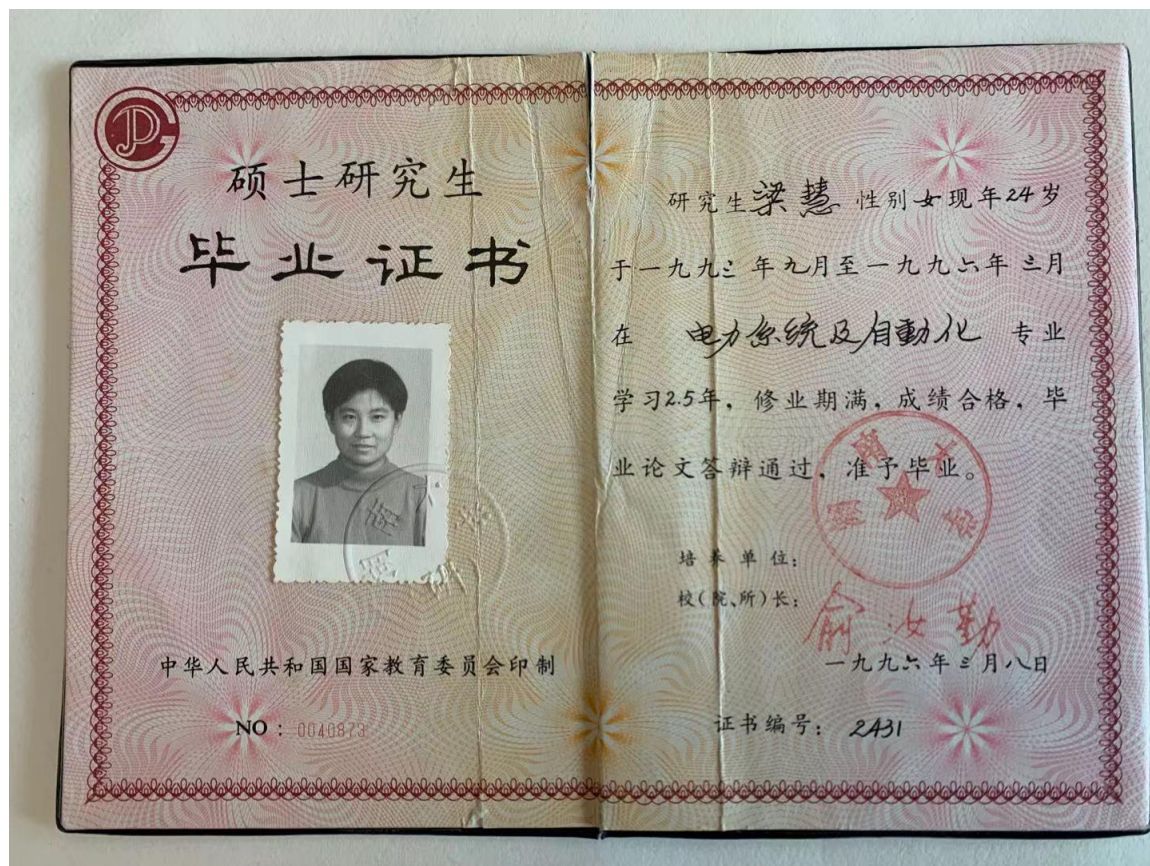 硕士研究生
毕业证书
中华人民共和国国家教育委员会印制
NO：0040873
研究生梁慧 性别女现年24岁
于一九九三年九月至一九九六年三月
在 电力系统及自動化 专业
学习2.5年，修业期满，成绩合格，毕
业论文答辩通过，准予毕业。
湖南大学
培养单位：
校(院、所)长：
俞汝勤
一九九六年三月八日
证书编号： 2A31